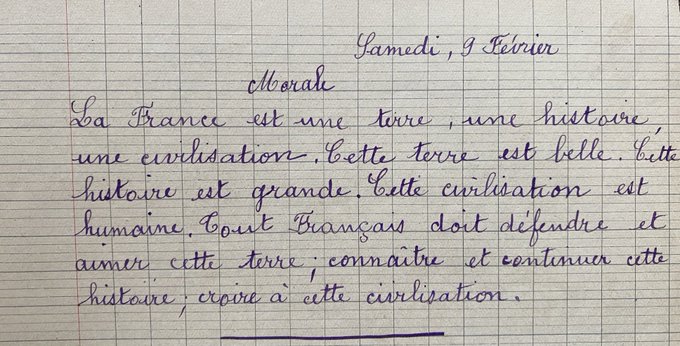 Samedi, 9 Février
Morale
La France est une terre, une histoire,
une civilisation. Cette terre est belle. Cette
histoire est grande. Cette civilisation est
humaine. Tout Français doit défendre et
aimer cette terre ; connaître et continuer cette
histoire ; croire à cette civilisation.